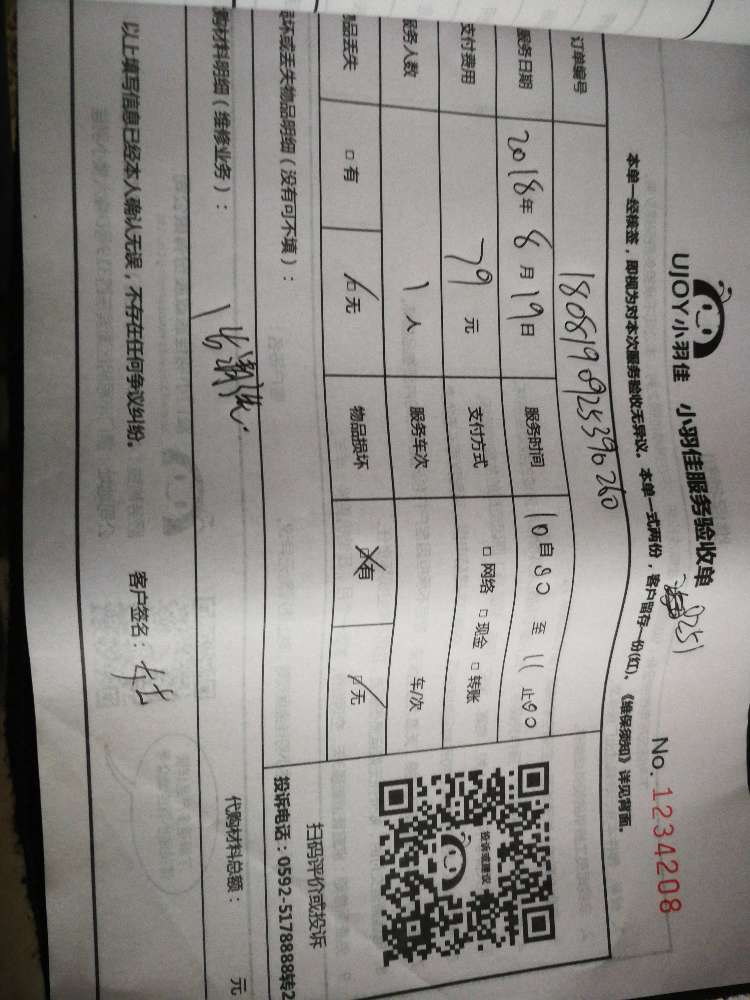 UJOY小羽佳 小羽佳服务验收单
No. 1234208
本单一经核签，即视为对本次服务验收无异议。本单一式两份，客户留存一份(红)、《维保须知》详见背面。
订单编号 180819092539260
服务日期 2018年8月19日 服务时间 10自30至11止00
支付费用 79元 支付方式 □网络 □现金 □转账
服务人数 1人 服务车次 车/次
物品丢失 □有 □无 物品损坏 □有 □无
损坏或丢失物品明细（没有可不填）：
代购材料明细（维修业务）：
代购材料总额： 元
以上填写信息已经本人确认无误，不存在任何争议纠纷。 客户签名：
投诉或建议
扫码评价或投诉
投诉电话：0592-5178888转2